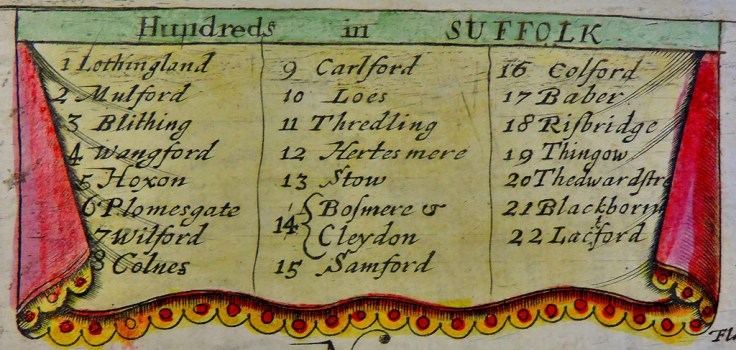 Hundreds in SUFFOLK
1 Lothingland
2 Mulford
3 Blithing
4 Wangford
5 Hoxon
6 Plomesgate
7 Wilford
8 Colnes
9 Carlford
10 Loes
11 Thredling
12 Hertesmere
13 Stow
14 Boſmere &
Cleydon
15 Samford
16 Colford
17 Baber
18 Riſbridge
19 Thingow
20 Thedwardſtre
21 Blackborn
22 Lacford